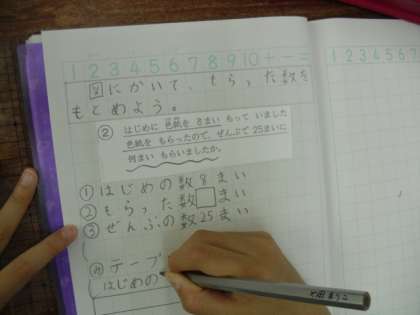 1 2 3 4 5 6 7 8 9 10 + − =
図にかいて、もらった数を
もとめよう。
② はじめに 色紙を 8まい もって いました
色紙を もらったので、ぜんぶで 25まいに
何まい もらいましたか。
① はじめの数 8 まい
② もらった数 □ まい
③ ぜんぶの数 25 まい
テープ
はじめの
1 2 3 4 5 6 7